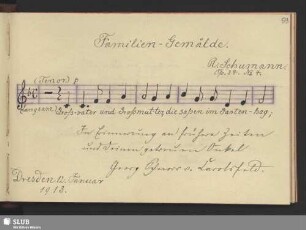 59
Familien-Gemälde.
R. Schumann.
Op. 34. No 4.
(Tenor) p
Langsam. Groß-vater und Großmutter, die saßen im Garten-hag;
In Erinnerung an frühere Zeiten
und Deinen getreuen Onkel
Georg Schnorr v. Carolsfeld.
Dresden 12. Januar
1913.
SLUB